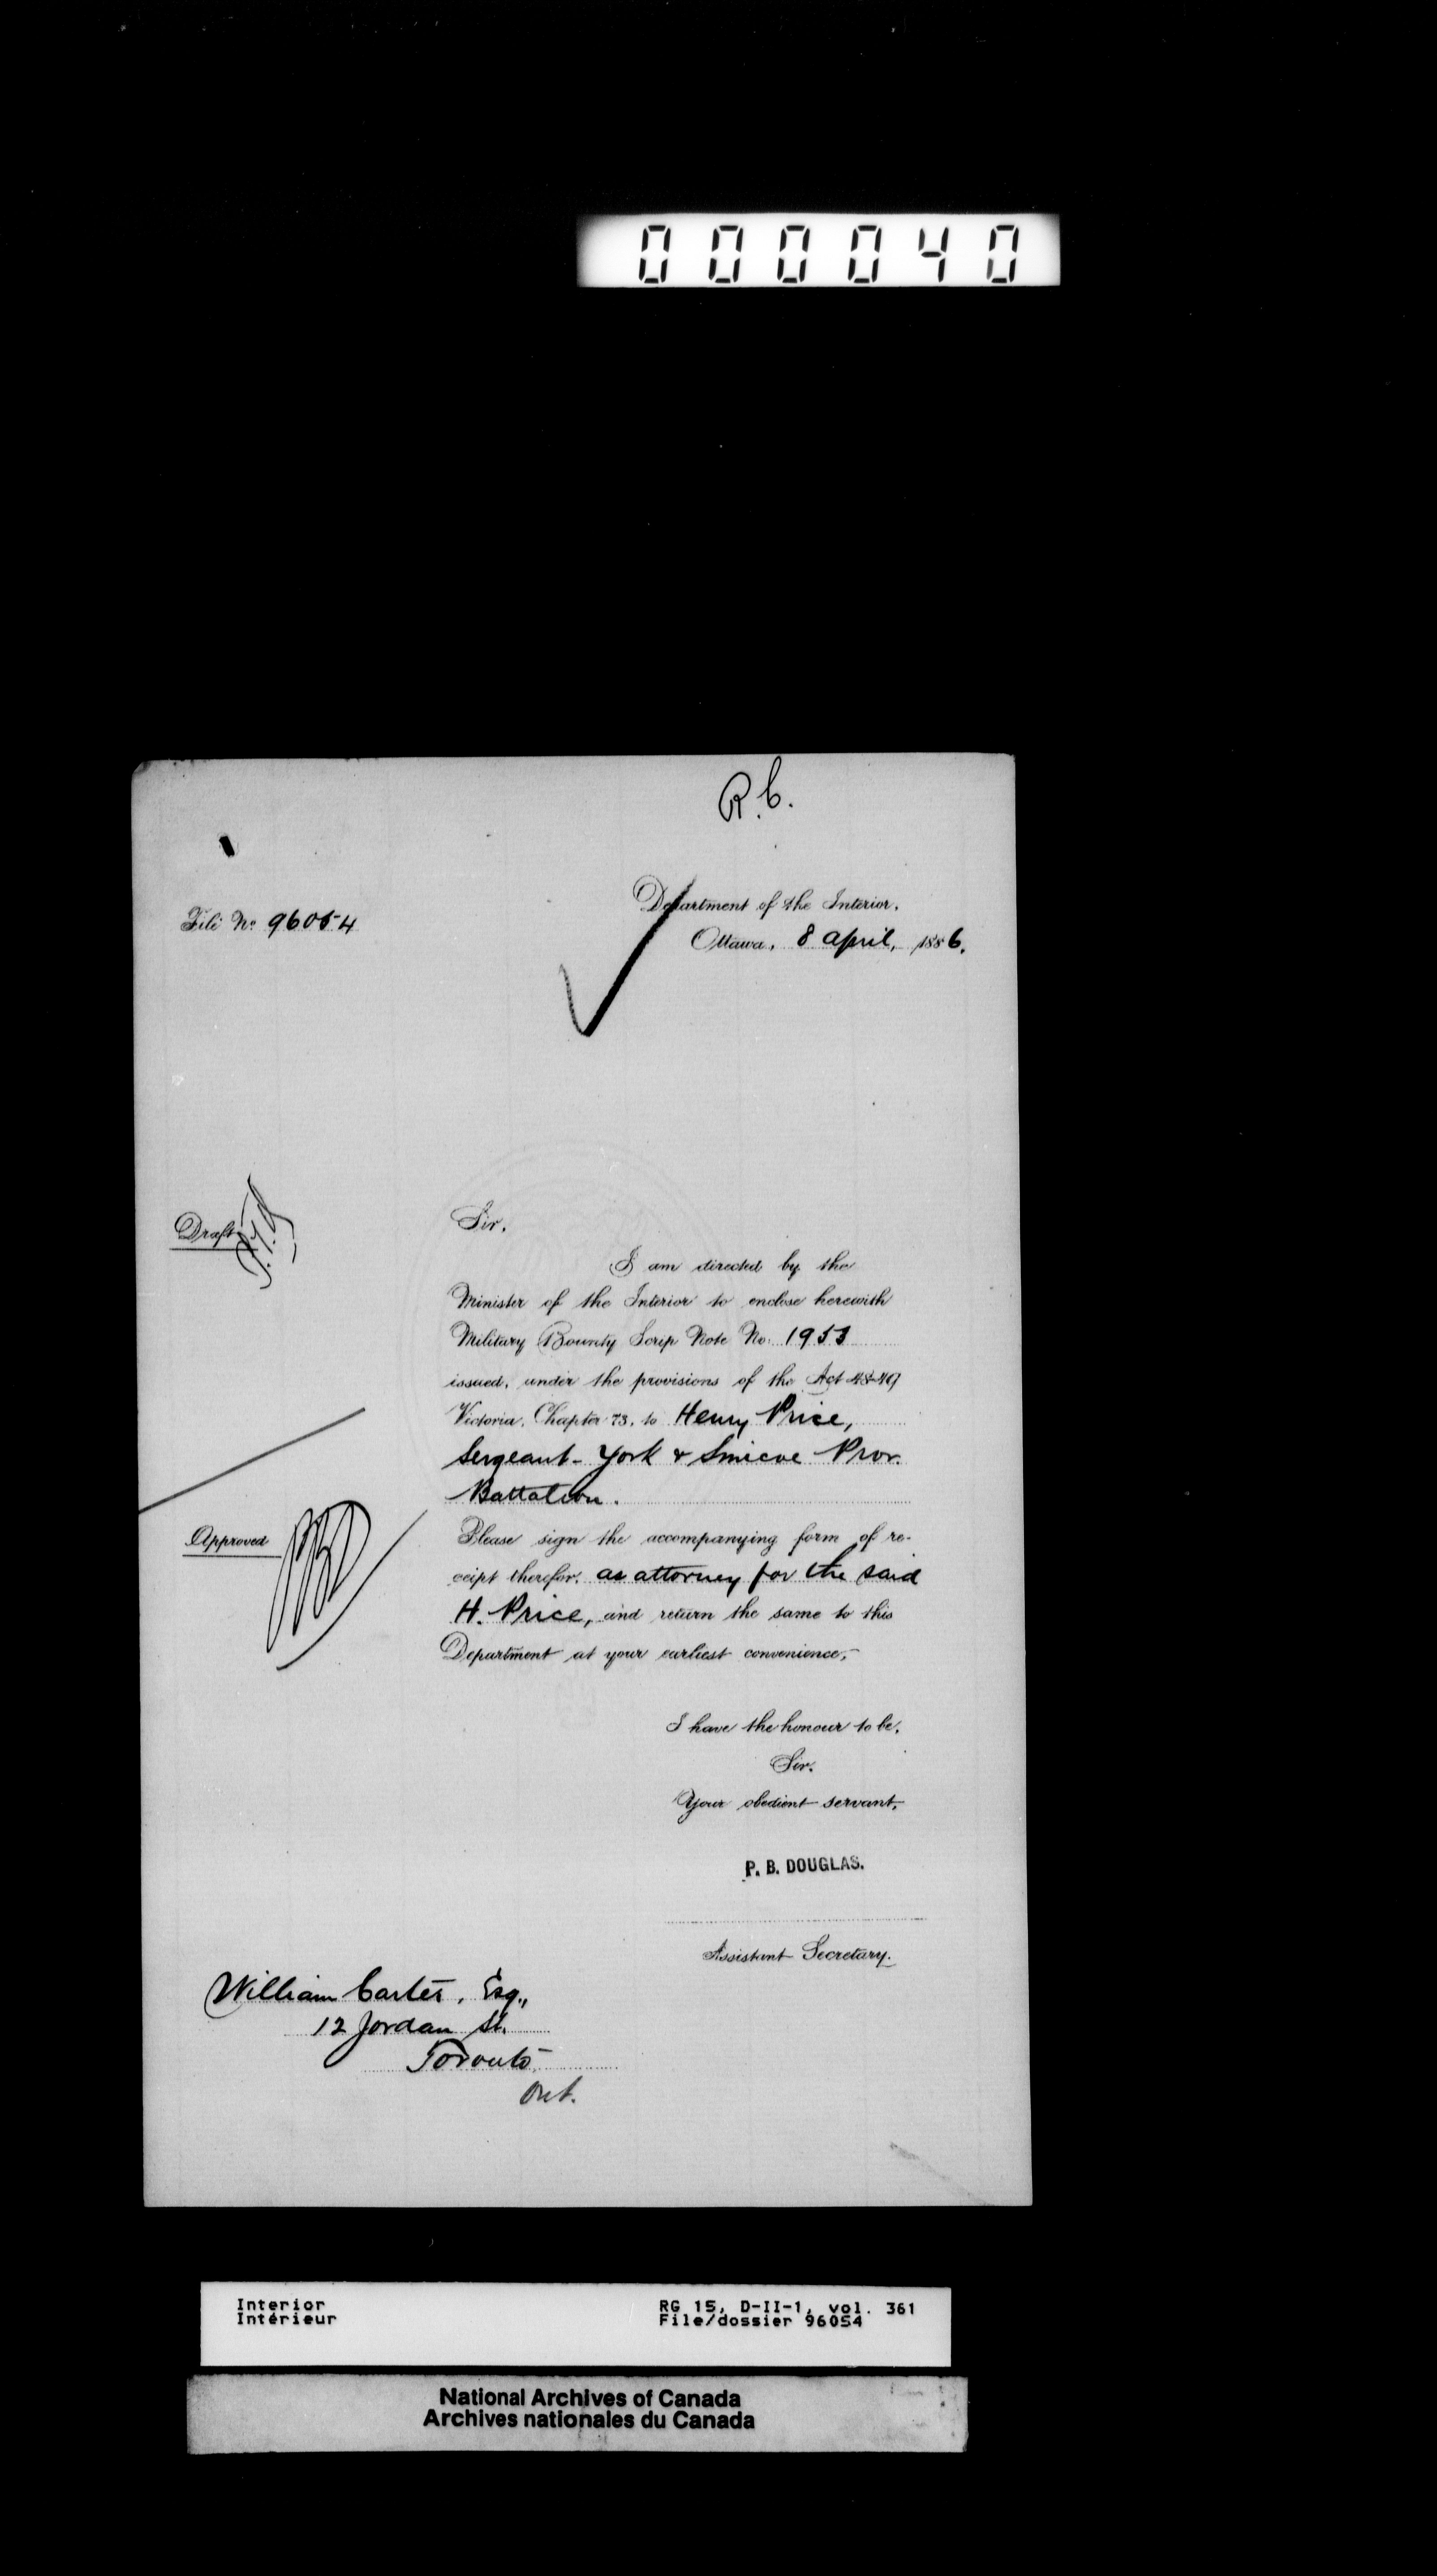 000040
R.C.
Department of the Interior,
File No. 96054
Ottawa, 8 April, 1886.
Draft
Sir,
I am directed by the
Minister of the Interior to enclose herewith
Military Bounty Scrip Note No. 1953
issued, under the provisions of the Act 48-49
Victoria, Chapter 73, to Henry Price,
Sergeant - York & Simcoe Prov.
Battalion.
Approved
Please sign the accompanying form of re-
ceipt therefor, as attorney for the said
H. Price, and return the same to this
Department at your earliest convenience,-
I have the honour to be,
Sir,
Your obedient servant,
P. B. DOUGLAS.
Assistant Secretary.
William Carter, Esq.,
12 Jordan St.
Toronto
Ont.
Interior
Intérieur
RG 15, D-II-1, vol. 361
File/dossier 96054
National Archives of Canada
Archives nationales du Canada